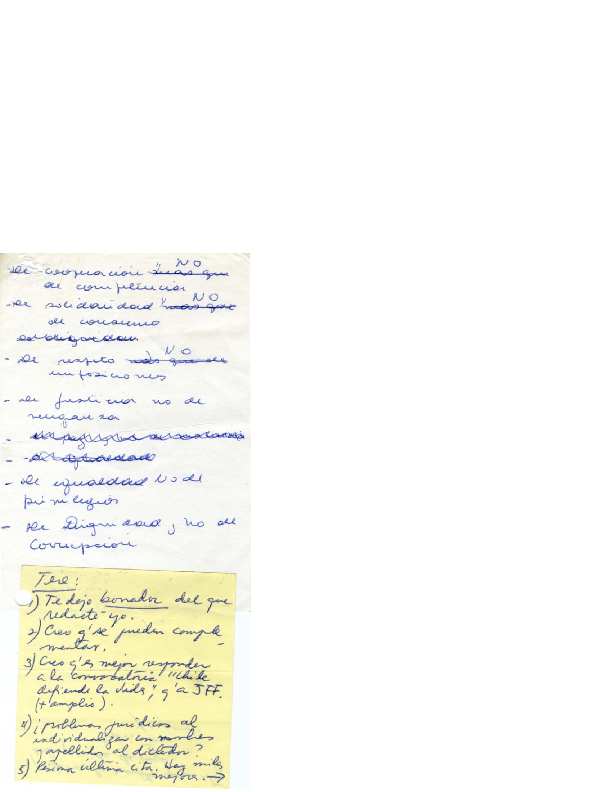 - De cooperación NO
de competencia
- De solidaridad NO
de consumo
- De respeto NO
imposiciones
- De Justicia no de
venganza
- De igualdad No de
privilegios
- De Dignidad y no de
Corrupción
Tere:
1) Te dejo borrador del que
redacté yo.
2) Creo q' se pueden comple
mentar.
3) Creo q' es mejor responder
a la convocatoria "Chile
defiende la vida", q' a JFF.
(+ amplio).
4) ¿problemas jurídicos al
individualizar con nombres
y apellidos al dictador?
5) Pésima última cita. Hay miles
mejores. →